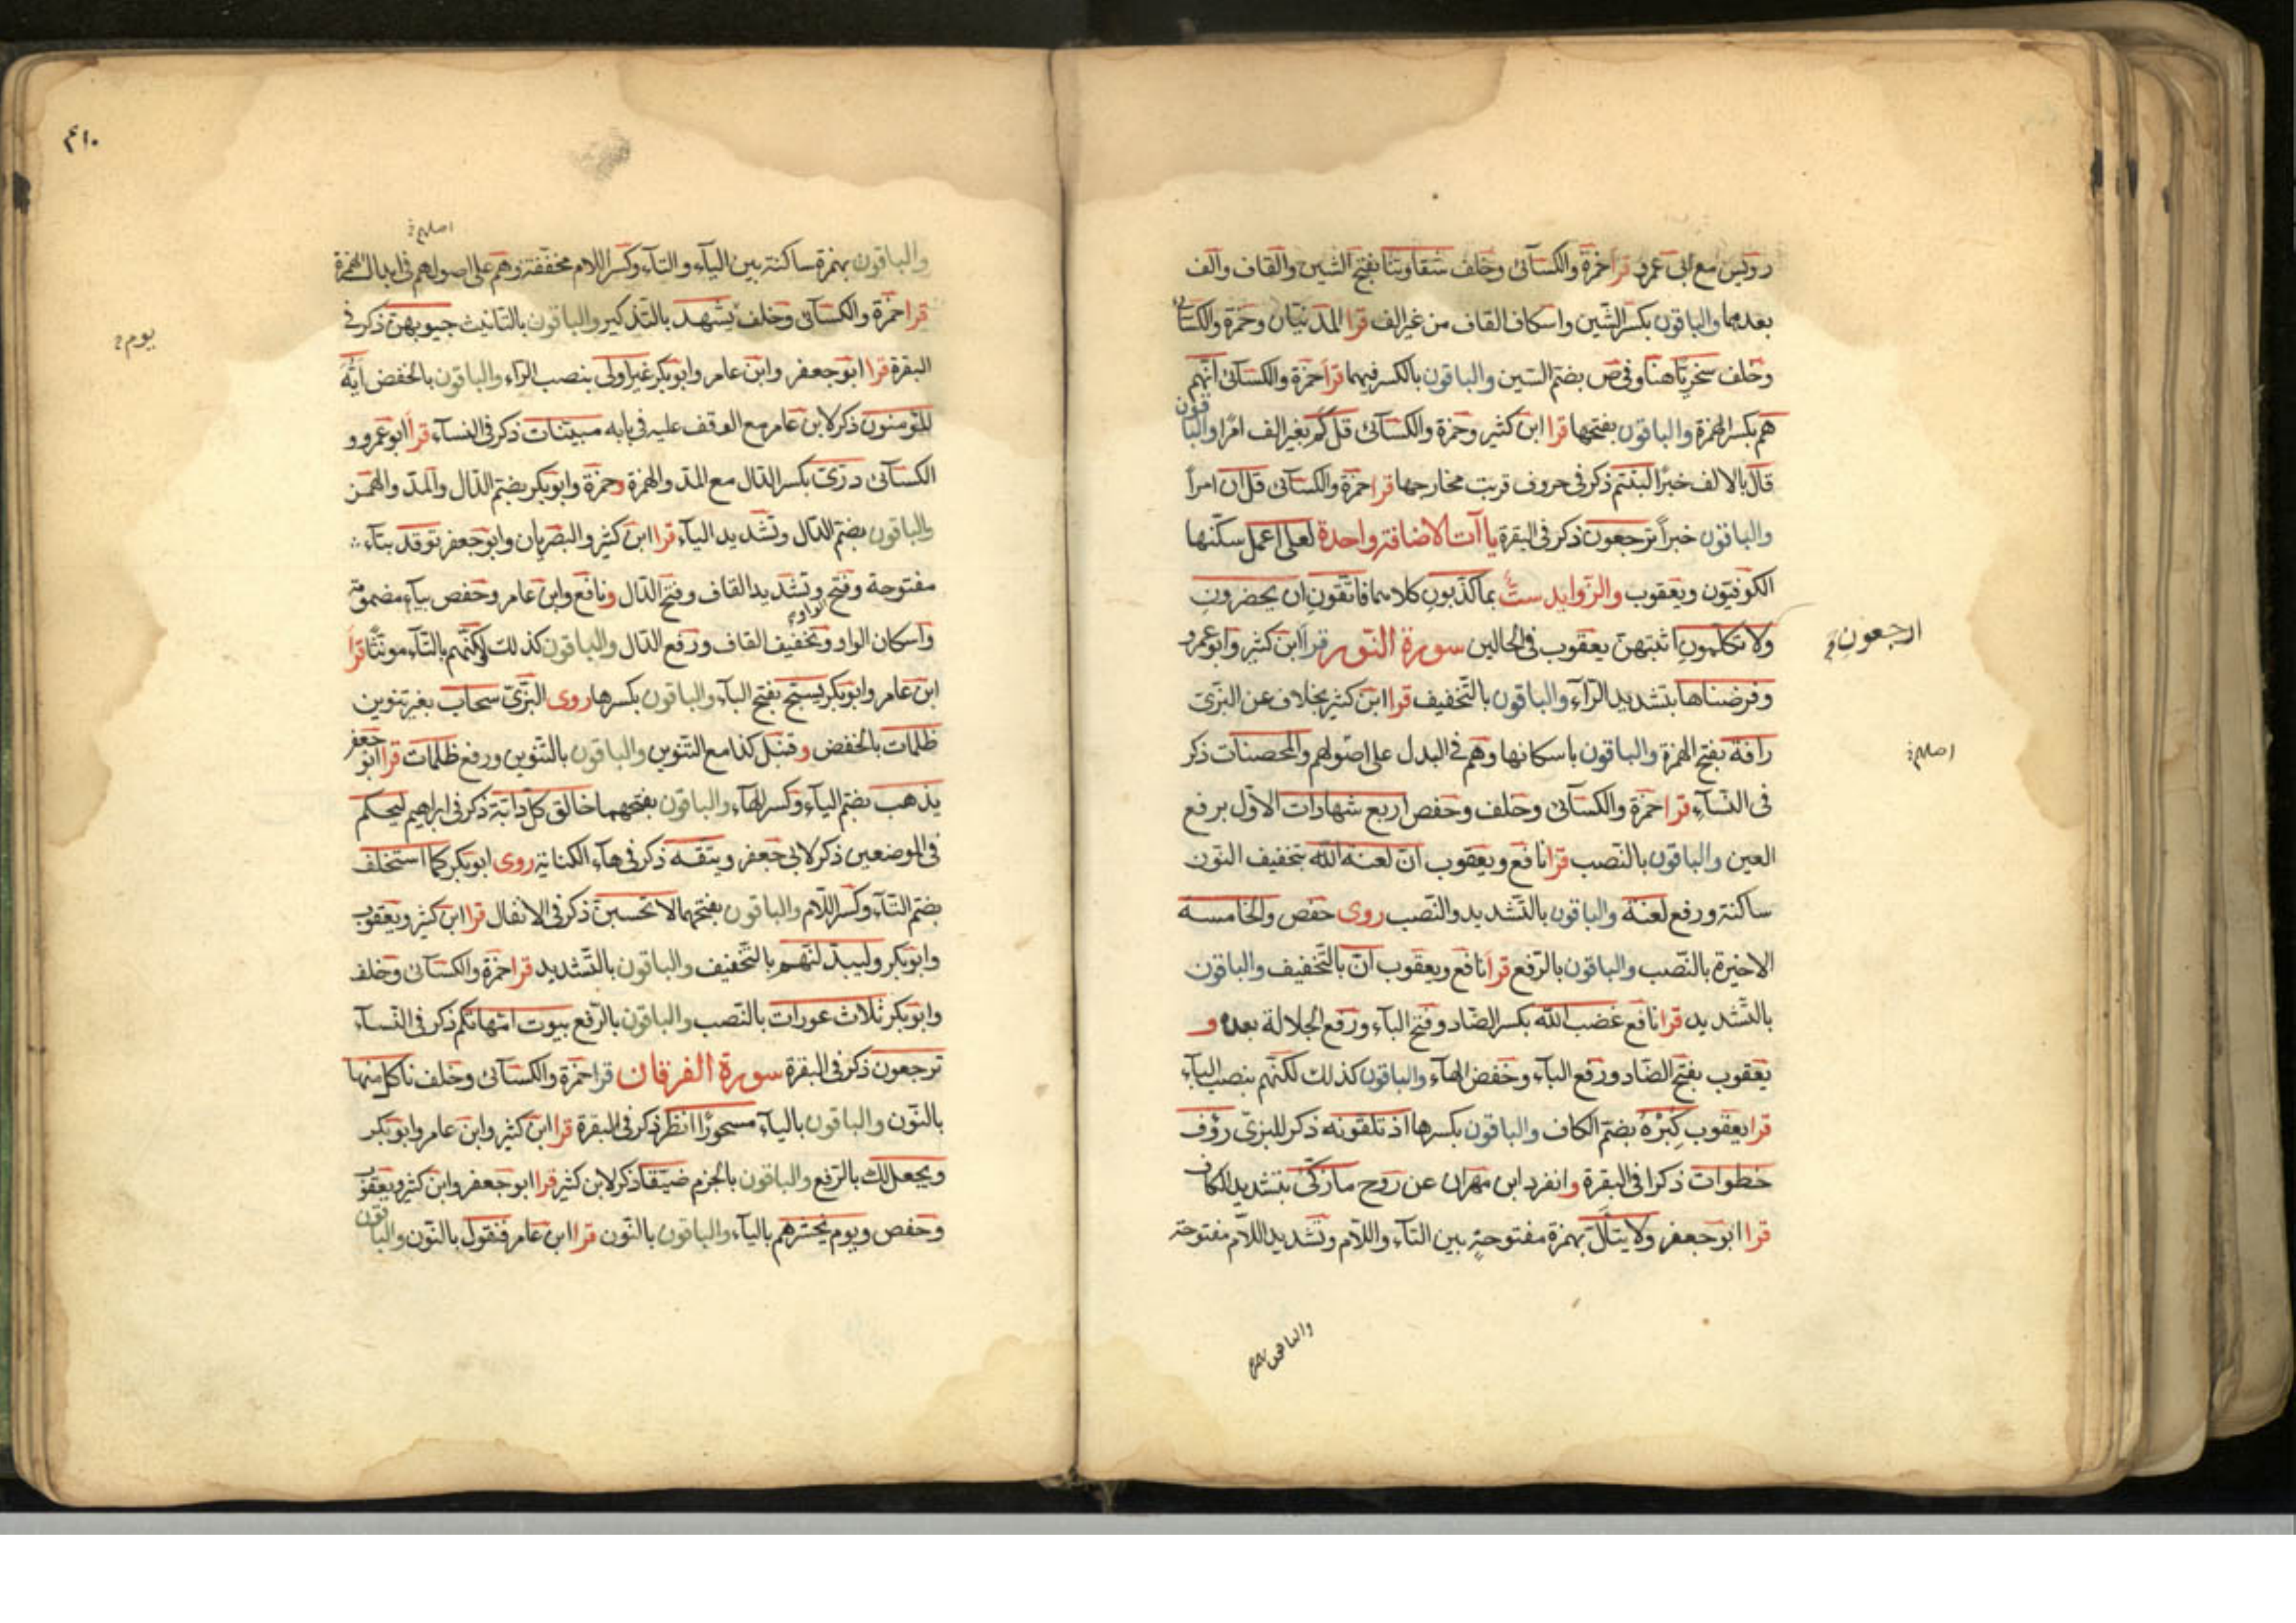 رويس مع ابى عمرو قرأ حمزة والكسآئى وخلف شقاوتنا بفتح الشين والقاف والف
بعدهما والباقون بكسر الشين واسكان القاف من غير الف قرا المدنيّان وحمزة والكسآئى
وخلف سخريّا هنا وفى ص بضم السّين والباقون بالكسر فيهما قرأ حمزة والكسآئى انّهم
هم بكسر الهمزة والباقون بفتحها قرا ابن كثير وحمزة والكسآئى قل كم بغير الف امرا والباقون
قال بالالف خبرا لبثتم ذكر فى حروف قربت مخارجها قرا حمزة والكسآئى قل ان امراً
والباقون خبراً ترجعون ذكر فى البقرة ياآت الاضافة واحدة لعلى اعمل سكّنها
الكوفيّون ويعقوب والزّوايد ستّ بما كذّبون كلاهما فاتّقون ان يحضرون
ارجعون
ولا تكلمون اثبتهنّ يعقوب فى الحالين سورة النّور قرأ ابن كثير وابو عمرو
وفرضناها بتشديد الرّاء والباقون بالتّخفيف قرا ابن كثير بخلاف عن البزّى
رافة بفتح الهمزة والباقون باسكانها وهم فى البدل على اصولهم والمحصنات ذكر
اصلهم
فى النّسآء قرا حمزة والكسآئى وخلف وحفص اربع شهادات الاوّل برفع
العين والباقون بالنّصب قرا نافع ويعقوب انْ لعنة الله بتخفيف النّون
ساكنة ورفع لعنة والباقون بالتّشديد والنّصب روى حفص والخامسة
الاخيرة بالنّصب والباقون بالرّفع قرا نافع ويعقوب ان بالتّخفيف والباقون
بالتّشديد قرا نافع غضب الله بكسر الضّاد وفتح البآء ورفع الجلالة بعده و
يعقوب بفتح الضّاد ورفع البآء وخفض الهآء والباقون كذلك لكنّهم بنصب البآء
قرا يعقوب كبره بضمّ الكاف والباقون بكسرها اذ تلقونه ذكر للبزّى رؤف
خطوات ذكرا فى البقرة وانفرد ابن مهران عن روح ما زكّى بتشديد الكاف
قرا ابو جعفر ولا يتألّ بهمزة مفتوحة بين التآء واللّام وتشديد اللّام مفتوحة
والباقون بهمزة
٤١٠
اصلهم
والباقون بهمزة ساكنة بين اليآء والتآء وكسر اللام مخففة وهم على اصولهم فى ابدال الهمزة
قرا حمزة والكسآئى وخلف يشهد بالتّذكير والباقون بالتّانيث جيوبهنّ ذكر فى
يوم
البقرة قرا ابو جعفر وابن عامر وابو بكر غير اولى بنصب الرّاء والباقون بالخفض ايّه
المؤمنون ذكر لابن عامر مع الوقف عليه فى بابه مبيّنات ذكر فى النسآء قرأ ابو عمرو و
الكسآئى درّى بكسر الدّال مع المدّ والهمزة وحمزة وابو بكر بضمّ الدّال والمدّ والهمز
والباقون بضمّ الدّال وتشديد اليآء قرا ابن كثير والبصريان وابو جعفر توقد بتآء
مفتوحة وفتح الواو وتشديد القاف وفتح الدّال ونافع وابن عامر وحفص بيآء مضمومة
واسكان الواو وتخفيف القاف ورفع الدّال والباقون كذلك لكنّهم بالتآء مونثا قرأ
ابن عامر وابو بكر يسبّح بفتح البآء والباقون بكسرها روى البزّى سحاب بغير تنوين
ظلمات بالخفض وقنبل كذا مع التّنوين والباقون بالتّنوين ورفع ظلمات قرا ابو جعفر
يذهب بضمّ اليآء وكسر الهآء والباقون بفتحهما خالق كلّ دابّة ذكر فى ابراهيم ليحكم
فى الموضعين ذكر لابى جعفر ويتقه ذكر فى هآء الكناية روى ابو بكر كما استخلف
بضمّ التآء وكسر اللّام والباقون بفتحهما لا تحسبنّ ذكر فى الانفال قرا ابن كثير ويعقوب
وابو بكر وليبدلنّهم بالتّخفيف والباقون بالتّشديد قرا حمزة والكسآئى وخلف
وابو بكر ثلاث عورات بالنّصب والباقون بالرّفع بيوت امّهاتكم ذكر فى النّسآء
ترجعون ذكر فى البقرة سورة الفرقان قرا حمزة والكسآئى وخلف ناكل منها
بالنّون والباقون باليآء مسحورا انظر ذكر فى البقرة قرا ابن كثير وابن عامر وابو بكر
ويجعل لك بالرّفع والباقون بالجزم ضيّقا ذكر لابن كثير قرا ابو جعفر وابن كثير ويعقوب
وحفص ويوم يحشرهم باليآء والباقون بالنّون قرا ابن عامر فنقول بالنّون والباقون